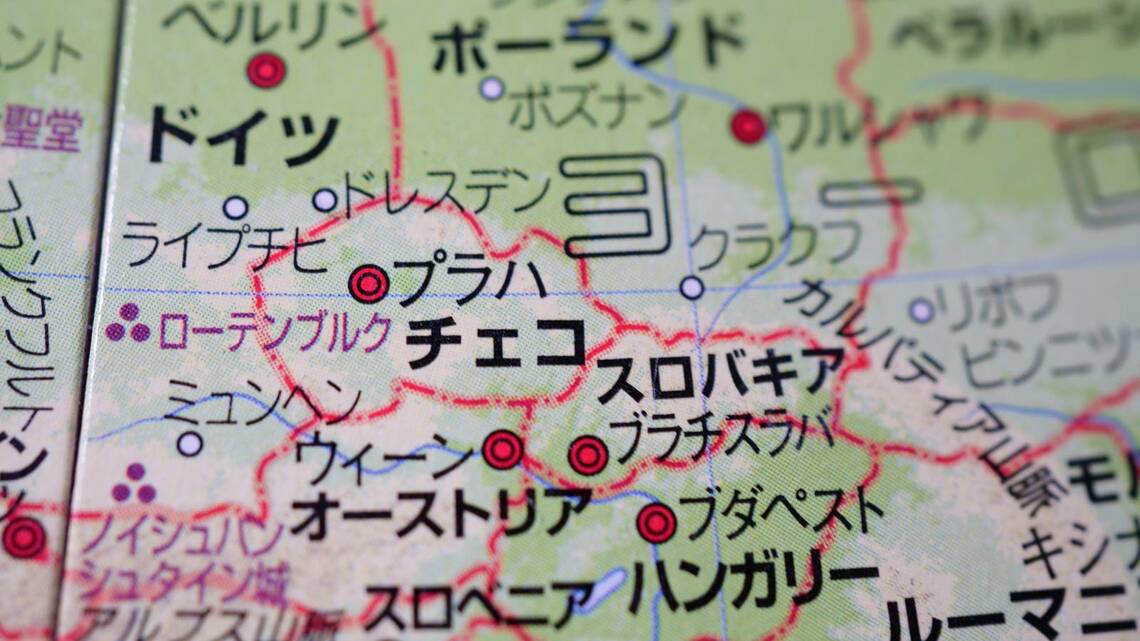 ベルリン
ポーランド
ベラルーシ
ント
聖堂
ポズナン
ワルシャワ
ドイツ
ドレスデン
ライプチヒ
クラクフ
プラハ
カルパティア山脈
リボフ
ビンニツ
ローテンブルク
チェコ
スロバキア
フランクフルト
ミュンヘン
ブラチスラバ
ウィーン
オーストリア
ブダペスト
モル
キシナ
ノイシュバン
シュタイン城
ハンガリー
スロベニア
アルプス山脈
ルーマニ